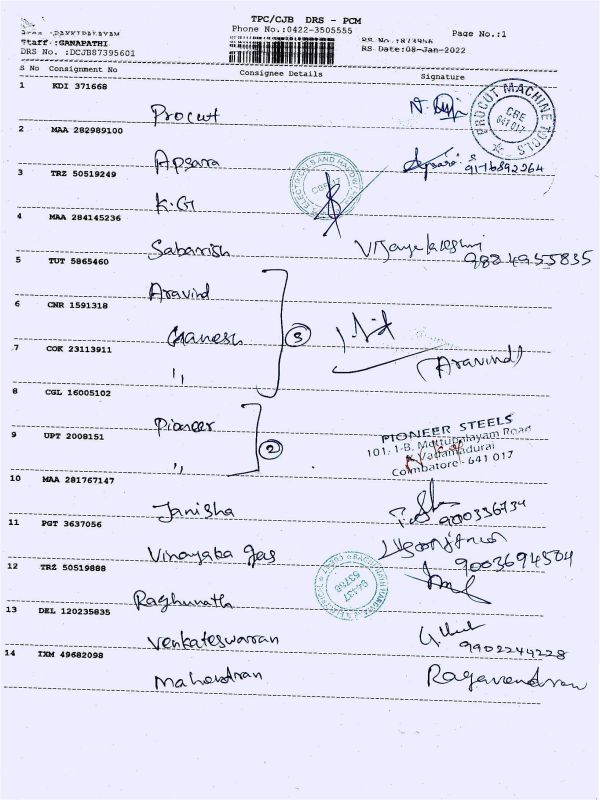 TPC/CJB DRS - PCM
Phone No.:0422-3505555
Page No.:1
Staff :GANAPATHI
DRS No. :DCJB87395601
RS Date:08-Jan-2022
S No Consignment No Consignee Details Signature
1 KDI 371668
Procut
PROCUT MACHINE TOOLS
CBE
641 017
2 MAA 282989100
Apsara
3 TRZ 50519249
K.G
4 MAA 284145236
Sabarish
9884955835
5 TUT 5865460
Aravind
6 CNR 1591318
Ganesh
3
7 COK 23113911
"
(Aravind)
8 CGL 16005102
Pioneer
9 UPT 2008151
"
2
PIONEER STEELS
101, 1-B, Mettupalayam Road
Vadamadurai
Coimbatore - 641 017
10 MAA 281767147
Janisha
11 PGT 3637056
Vinayaka gas
9003694504
12 TRZ 50519888
Raghunath
13 DEL 120235835
Venkateswarran
9902244228
14 IXM 49682098
Mahendran
Ragavendran